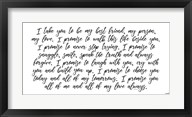 I take you to be my best friend, my person,
my love. I promise to walk this life beside you,
I promise to never stop trying. I promise to
snuggle, smile, speak the truth and always
forgive. I promise to laugh with you, cry with
you and build you up. I promise to choose you
today and all of my tomorrows. I promise you
all of me and all of my love always.